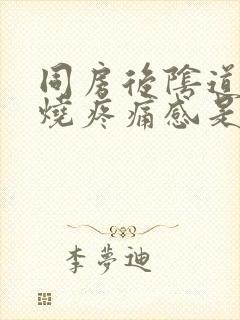 同房後陰道
燒疼痛感是
李夢迪